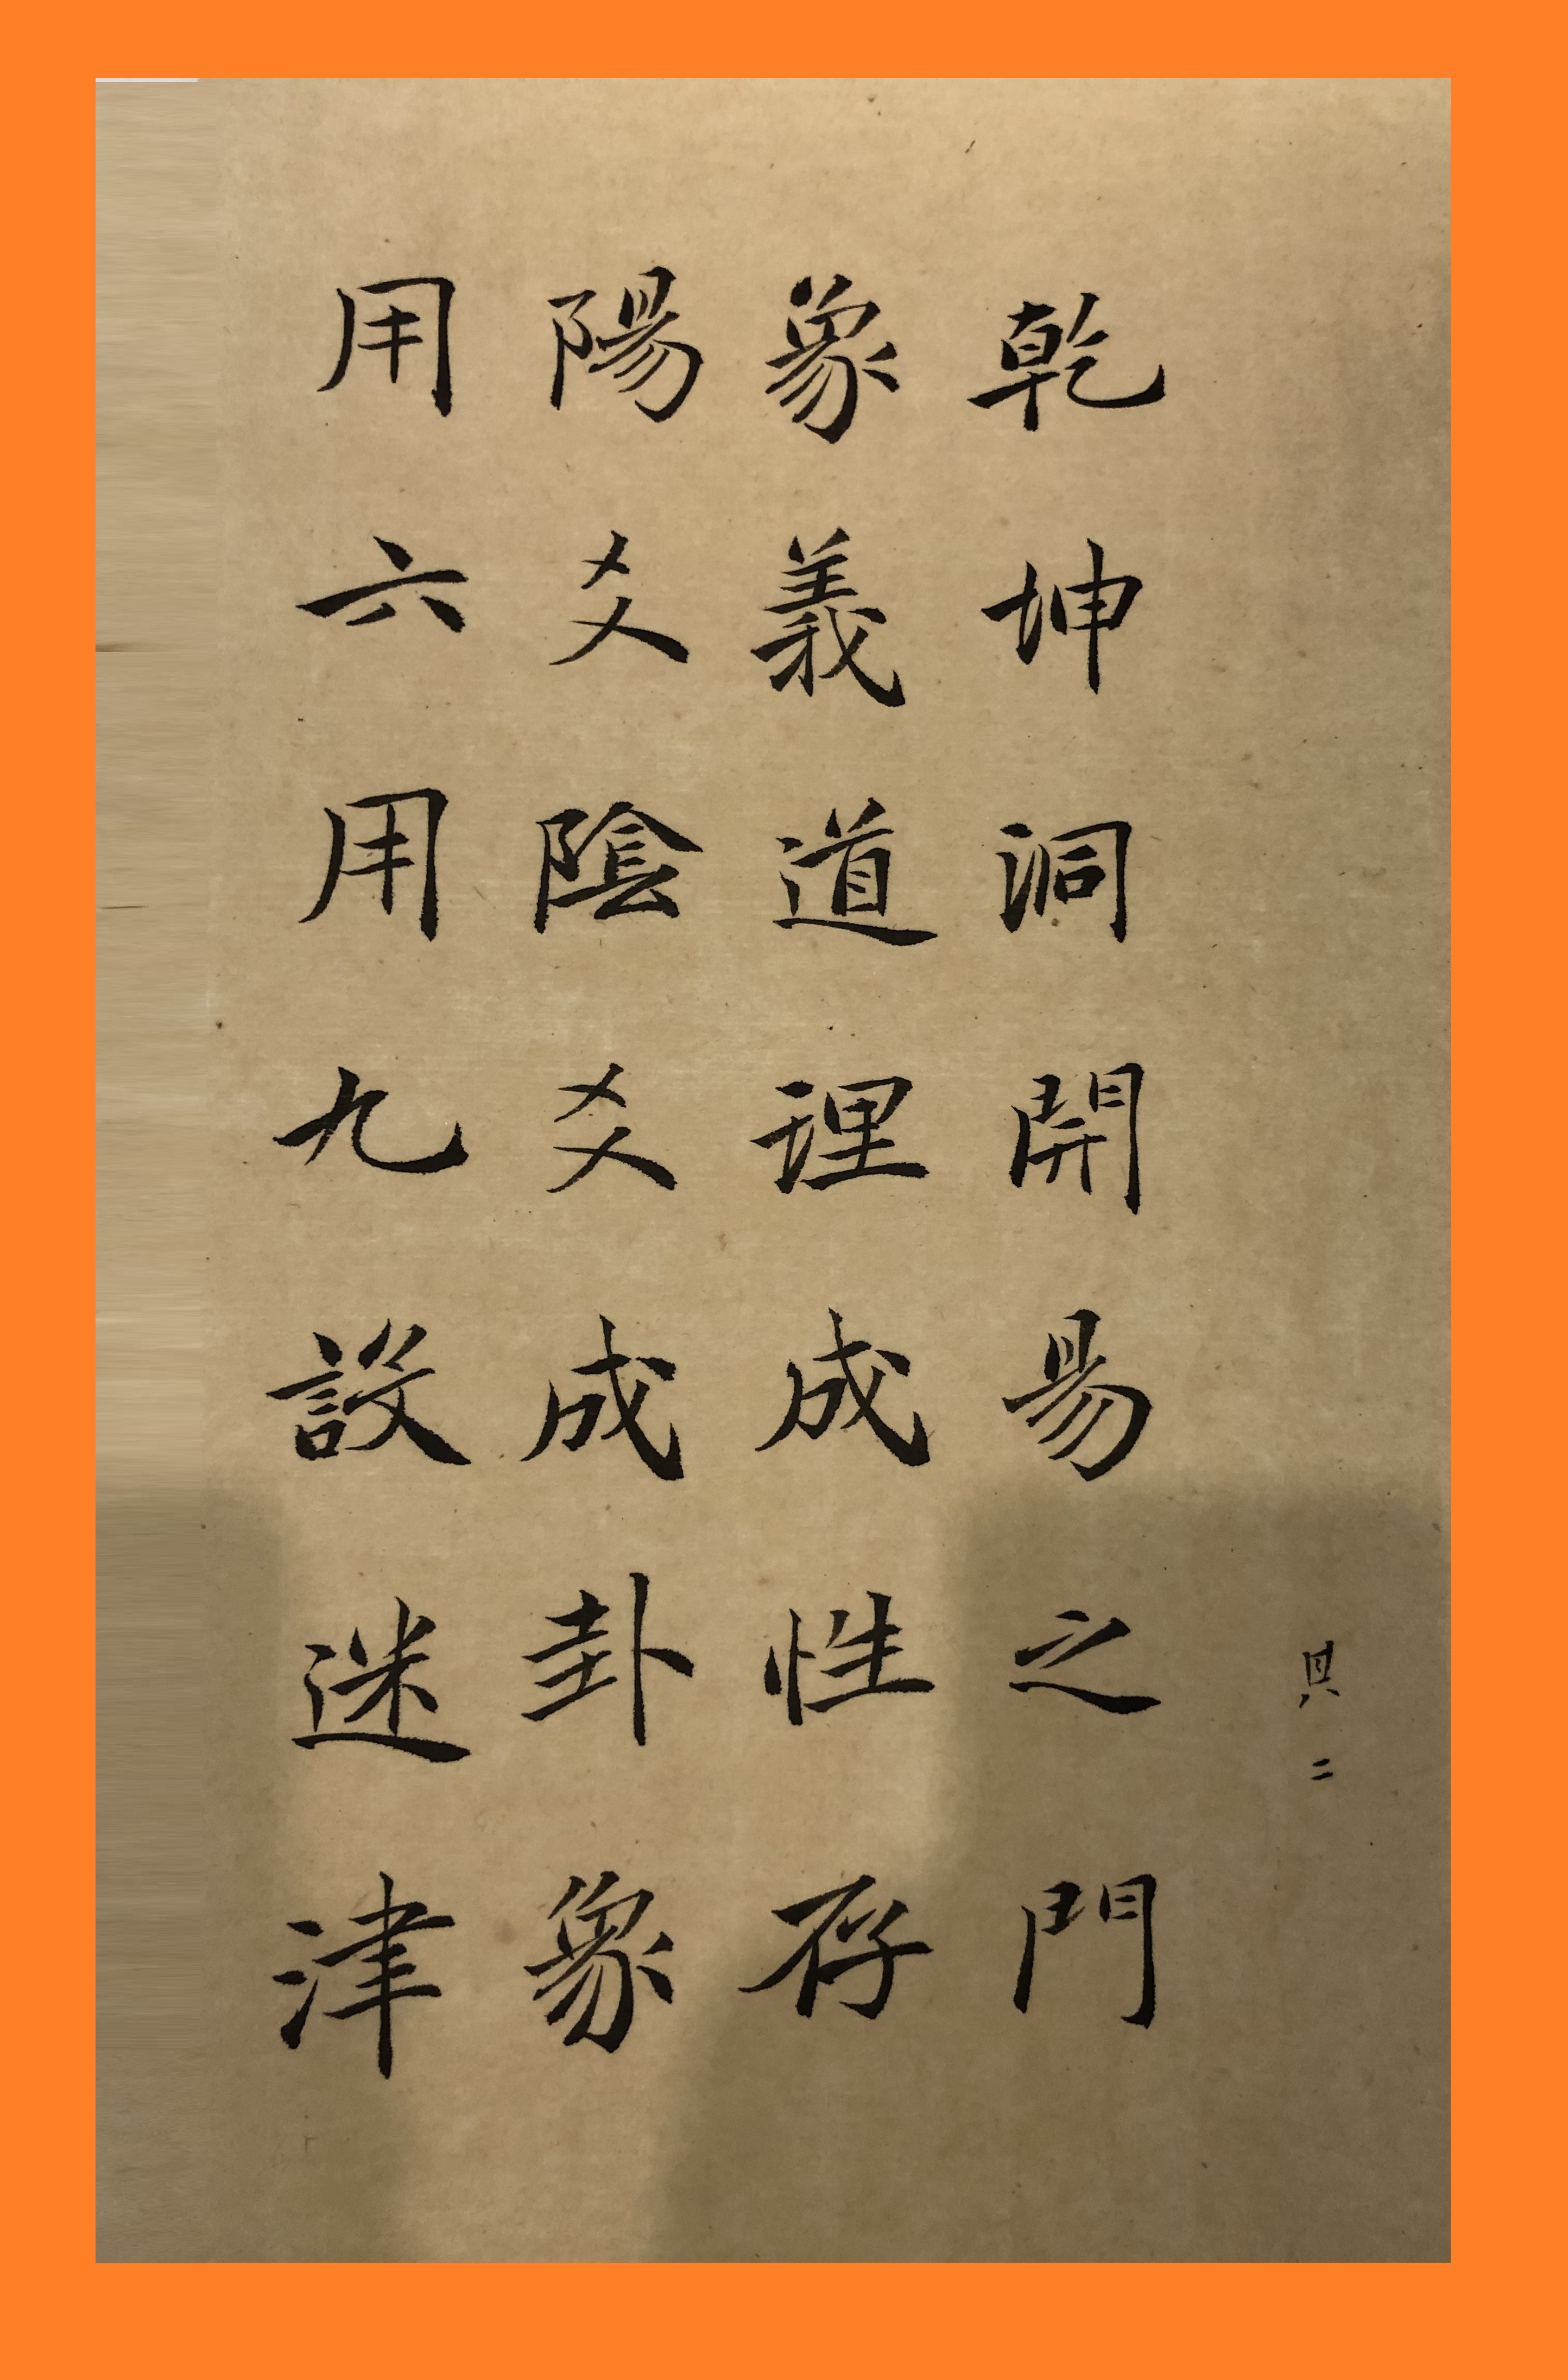 其二
乾坤洞開易之門
象義道理成性存
陽爻陰爻成卦象
用六用九設迷津